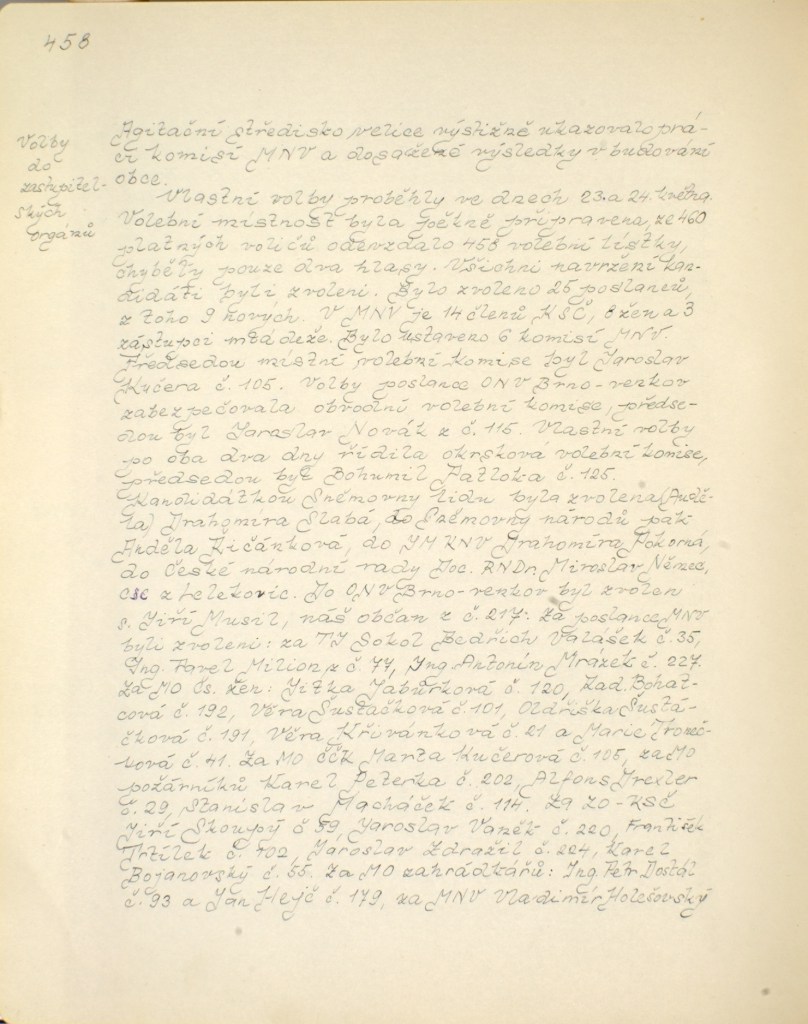 458
Volby
do
zastupitel-
ských
orgánů
Agitační středisko velice výstižně ukazovalo prá-
ci komisí MNV a dosažené výsledky v budování
obce.
Vlastní volby proběhly ve dnech 23. a 24. května.
Volební místnost byla pěkně připravena, ze 460
platných voličů odevzdalo 458 volební lístky,
chyběly pouze dva hlasy. Všichni navržení kan-
didáti byli zvoleni. Bylo zvoleno 26 poslanců,
z toho 9 nových. V MNV je 14 členů KSČ, 8 žen a 3
zástupci mládeže. Bylo ustaveno 6 komisí MNV.
Předsedou místní volební komise byl Jaroslav
Kučera č. 105. Volby poslance ONV Brno-venkov
zabezpečovala obvodní volební komise, předse-
dou byl Jaroslav Novák z č. 115. Vlastní volby
po oba dva dny řídila okrsková volební komise,
předsedou byl Bohumil Patloka č. 125.
Kandidátkou Sněmovny lidu byla zvolena (Andě-
la) Drahomíra Slabá, do Sněmovny národů pak
Anděla Řičánková, do JM KNV Drahomíra Pokorná,
do České národní rady Doc. RNDr. Miroslav Němec,
CSc z Lelekovic. Do ONV Brno-venkov byl zvolen
s. Jiří Musil, náš občan z č. 217: za poslance MNV
byli zvoleni: za TJ Sokol Bedřich Valášek č. 35,
Ing. Pavel Milion z č. 77, Ing. Antonín Mrázek č. 227.
Za MO čs. žen: Jitka Jabůrková č. 120, Lad. Bohat-
cová č. 192, Věra Šustáčková č. 101, Oldřiška Šustá-
čková č. 191, Věra Křivánková č. 21 a Marie
ková č. 41. Za MO ČČK Marta Kučerová č. 105, za MO
požárníků Karel Peterka č. 202, Alfons Drexler
č. 29, Stanislav Macháček č. 114. Za ZO-KSČ
Jiří Skoupý č. 59, Jaroslav Vaněk č. 220, František
Tržílek č. 102, Jaroslav Zdražil č. 224, Karel
Bojanovský č. 55. Za MO zahrádkářů: Ing. Petr Dostál
č. 93 a Jan Hejč č. 179, za MNV Vladimír Holešovský